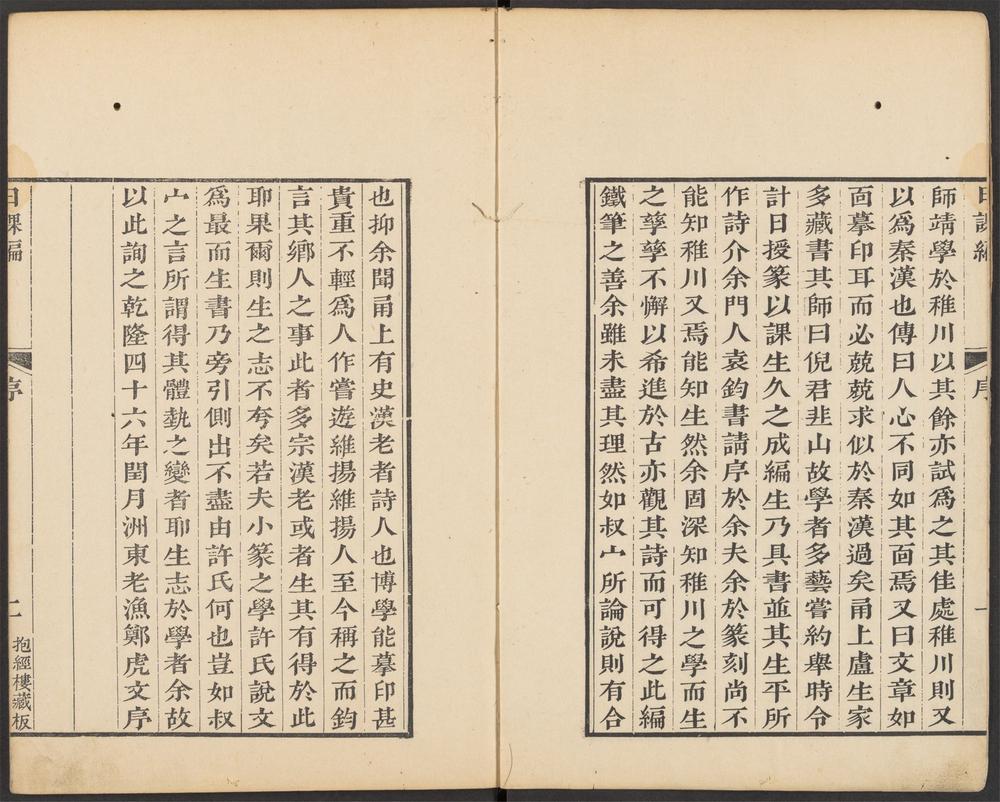 日課編
序
一
師靖學於稚川以其餘亦試爲之其佳處稚川則又
以爲秦漢也傳曰人心不同如其面焉又曰文章如
面摹印耳而必兢兢求似於秦漢過矣甬上盧生家
多藏書其師曰倪君韭山故學者多藝嘗約舉時令
計日授篆以課生久之成編生乃具書並其生平所
作詩介余門人袁鈞書請序於余夫余於篆刻尚不
能知稚川又焉能知生然余固深知稚川之學而生
之孳孳不懈以希進於古亦觀其詩而可得之此編
鐵筆之善余雖未盡其理然如叔宀所論說則有合
也抑余聞甬上有史漢老者詩人也博學能摹印甚
貴重不輕爲人作嘗遊維揚維揚人至今稱之而鈞
言其鄉人之事此者多宗漢老或者生其有得於此
耶果爾則生之志不夸矣若夫小篆之學許氏說文
爲最而生書乃旁引側出不盡由許氏何也豈如叔
宀之言所謂得其體埶之變者耶生志於學者余故
以此詢之乾隆四十六年閏月洲東老漁鄭虎文序
日課編
序
二
抱經樓藏板